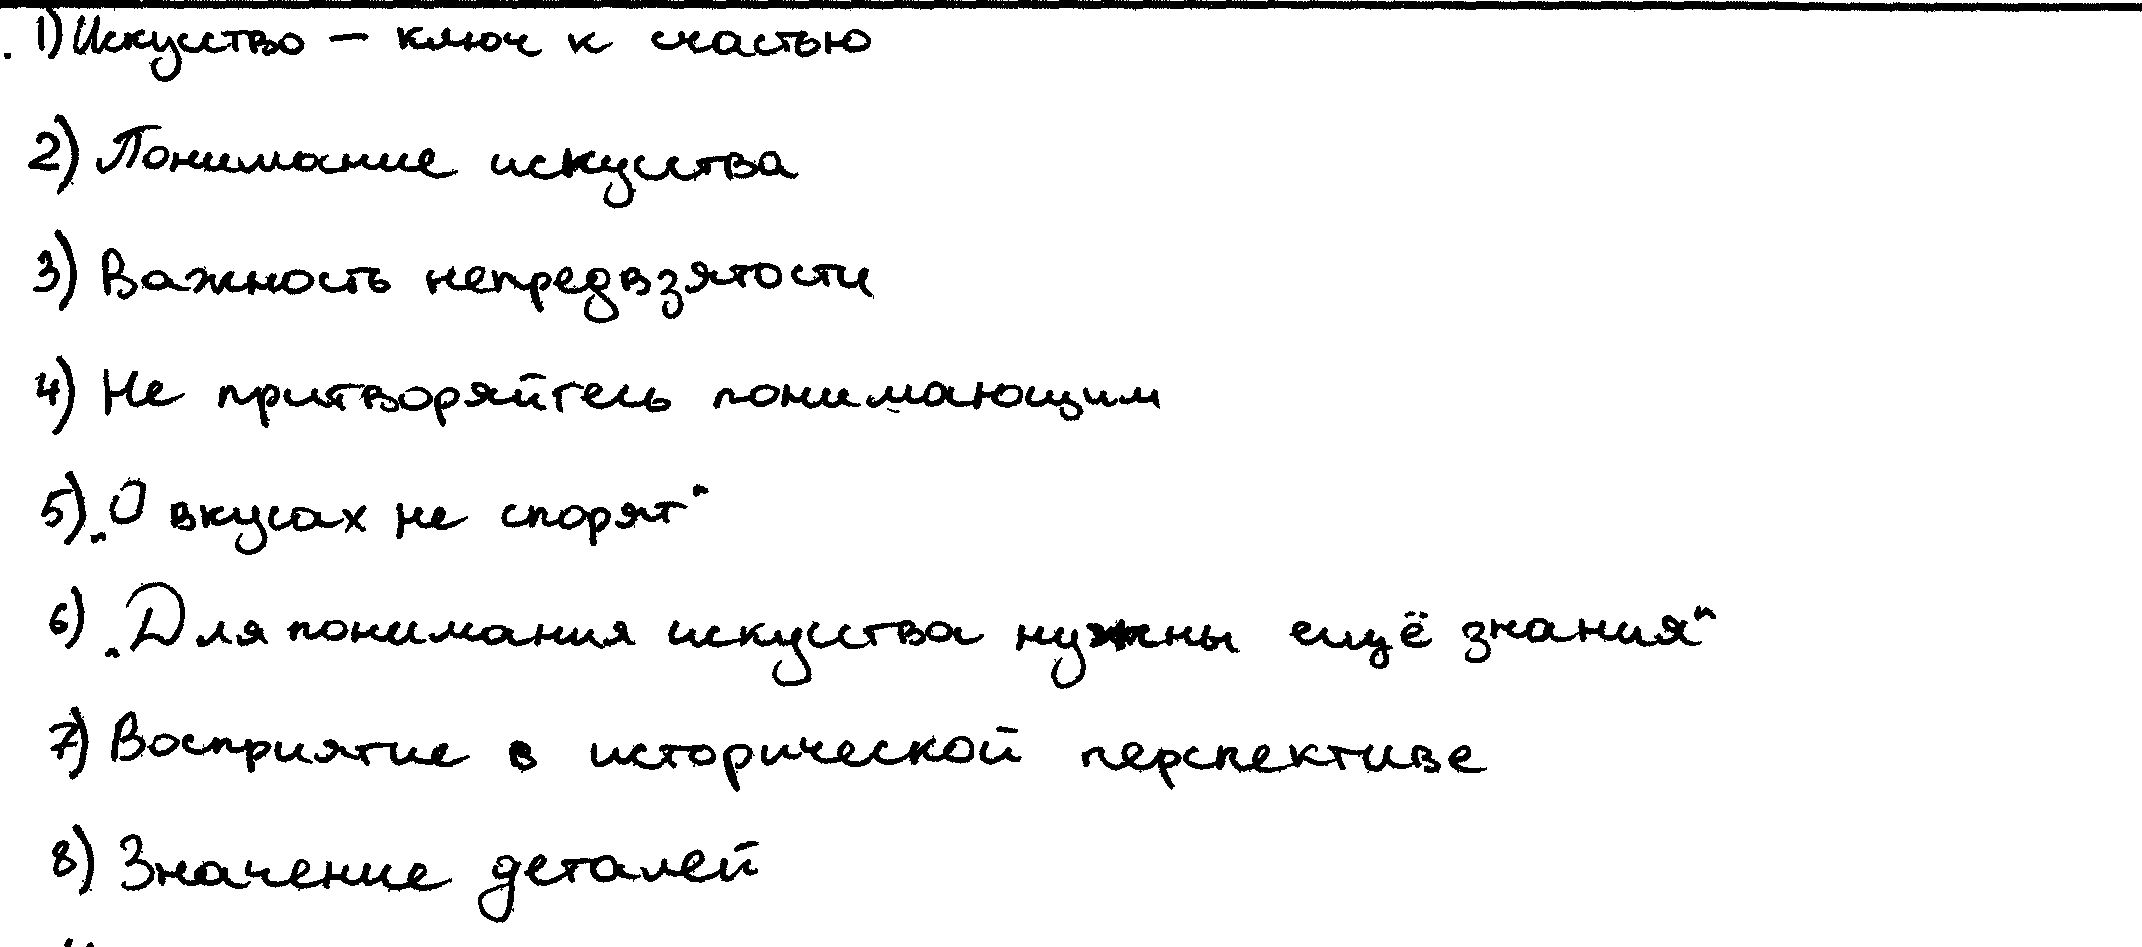 1) Искусство – ключ к счастью
2) Понимание искусства
3) Важность непредвзятости
4) Не притворяйтесь понимающим
5) „О вкусах не спорят“
6) „Для понимания искусства нужны ещё знания“
7) Восприятие в исторической перспективе
8) Значение деталей